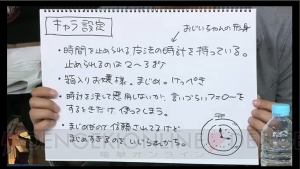 キャラ設定
おじいちゃんの形身
・時間を止められる魔法の時計を持っている。
止められるのは2〜3秒
・箱入りお嬢様。まじめ。けっぺき
・時計を決して悪用しないが、言いづらい
するときだけ使ってしまう。
・まじめなので信頼されてるけど
まじめすぎるのでいじられがち。